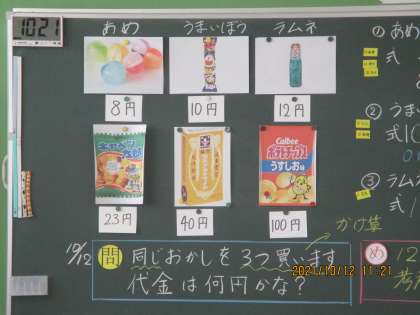 10:21
あめ
うまいぼう
ラムネ
8円
10円
12円
Calbee
ポテトチップス
うすしお味
23円
40円
100円
かけ算
10/12
問 同じおかしを3つ買います
代金は何円かな?
① あめ
式
② うまい
式 10
③ ラムネ
式
め 12
2021/10/12 11:21